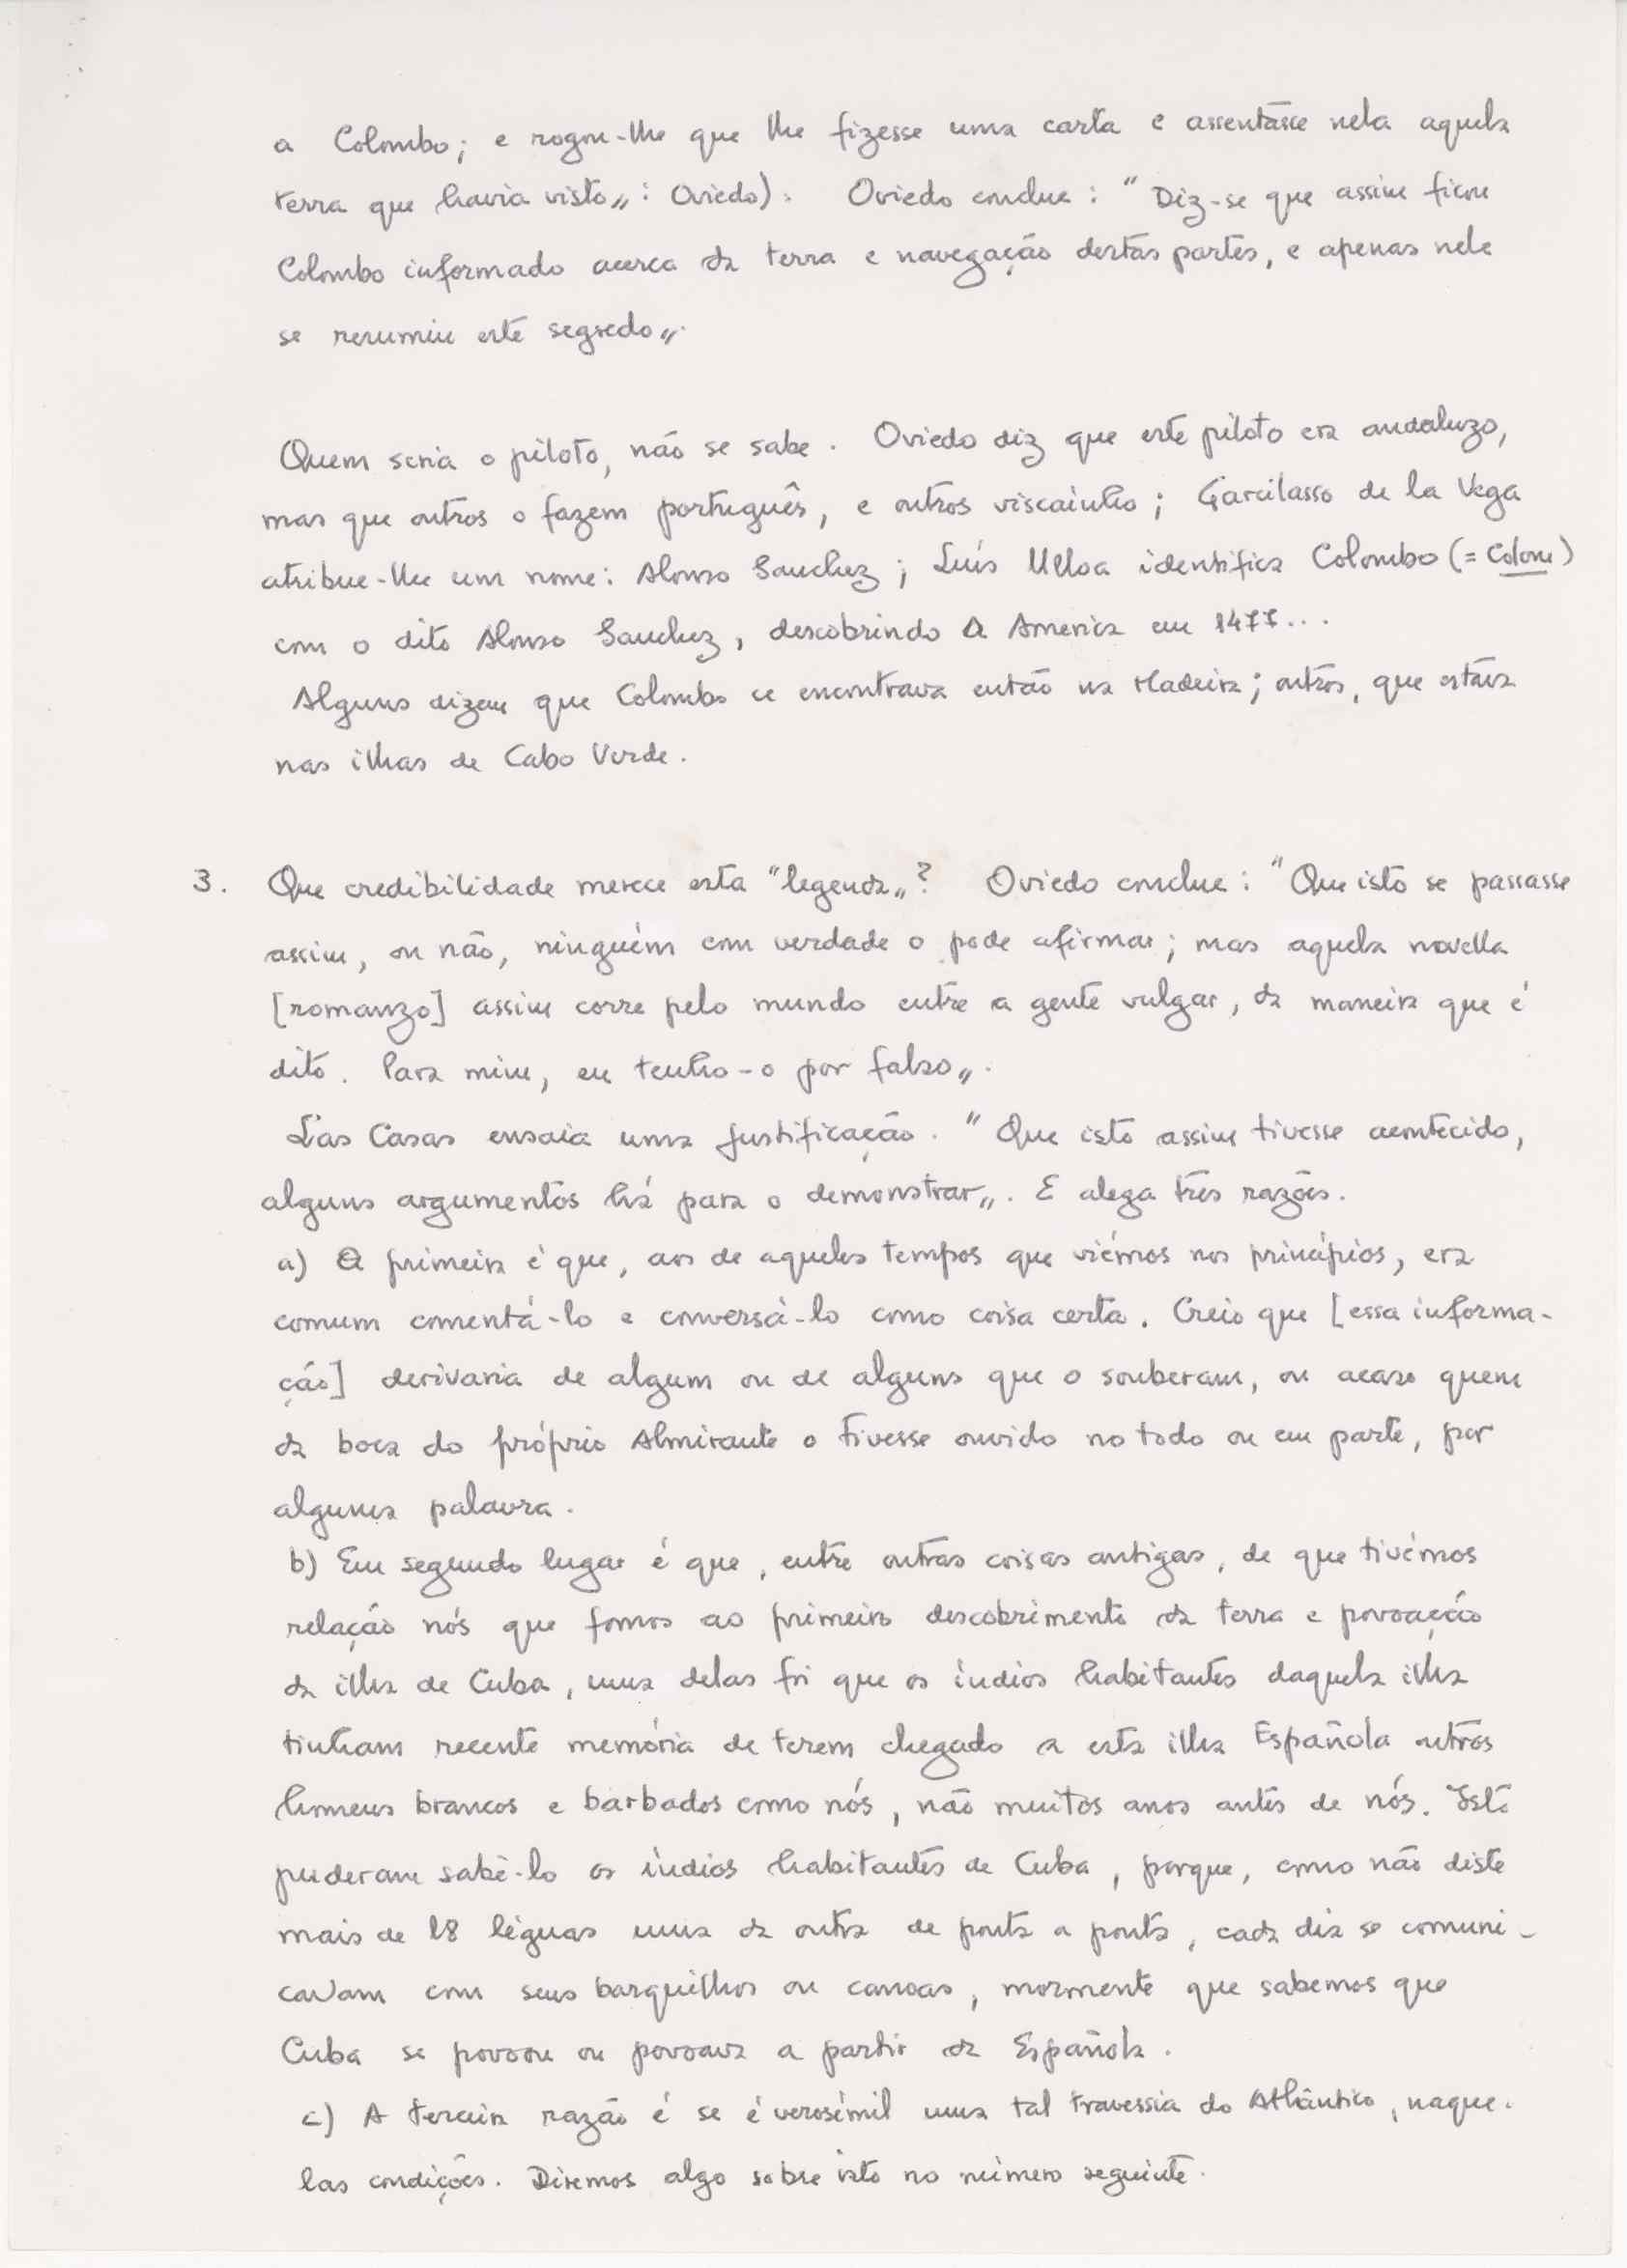 a Colombo; e rogou-lhe que lhe fizesse uma carta e assentasse nela aquela
terra que havia visto„: Oviedo). Oviedo conclue: "Diz-se que assim ficou
Colombo informado acerca da terra e navegação destas partes, e apenas nele
se resumiu este segredo„.
Quem seria o piloto, não se sabe. Oviedo diz que este piloto era andaluzo,
mas que outros o fazem português, e outros viscaínho; Garcilasso de la Vega
atribue-lhe um nome: Alonso Sanchez; Luís Ulloa identifica Colombo (= Colom)
com o dito Alonso Sanchez, descobrindo a America em 1477...
Alguns dizem que Colombo se encontrava então na Madeira; outros, que estava
nas ilhas de Cabo Verde.
3. Que credibilidade merece esta "legenda„? Oviedo conclue: "Que isto se passasse
assim, ou não, ninguém com verdade o pode afirmar; mas aquela novella
[romanzo] assim corre pelo mundo entre a gente vulgar, da maneira que é
dito. Para mim, eu tenho-o por falso„.
Las Casas ensaia uma justificação. "Que isto assim tivesse acontecido,
alguns argumentos há para o demonstrar„. E alega três razões.
a) A primeira é que, aos de aqueles tempos que viémos nos princípios, era
comum comentá-lo e conversá-lo como coisa certa. Creio que [essa informa-
ção] derivaria de algum ou de alguns que o souberam, ou acaso quem
da boca do próprio Almirante o tivesse ouvido no todo ou em parte, por
alguma palavra.
b) Em segundo lugar é que, entre outras coisas antigas, de que tivémos
relação nós que fomos ao primeiro descobrimento da terra e povoação
da ilha de Cuba, uma delas foi que os índios habitantes daquela ilha
tinham recente memória de terem chegado a esta ilha Española outros
homens brancos e barbados como nós, não muitos anos antes de nós. Isto
puderam sabê-lo os índios habitantes de Cuba, porque, como não diste
mais de 18 léguas uma da outra de ponta a ponta, cada dia se comuni-
cavam com seus barquilhos ou canoas, mormente que sabemos que
Cuba se povoou ou povoava a partir da Española.
c) A terceira razão é se é verosímil uma tal travessia do Atlântico, naque-
las condições. Diremos algo sobre isto no número seguinte.